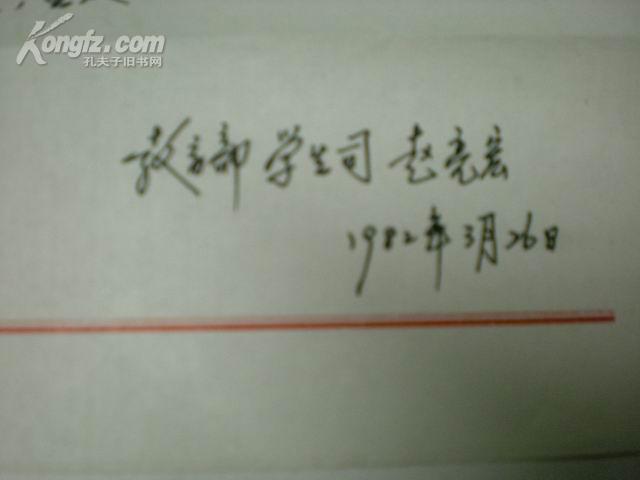 Kongfz.com
孔夫子旧书网
教育部学生司 赵亮宏
1982年3月26日